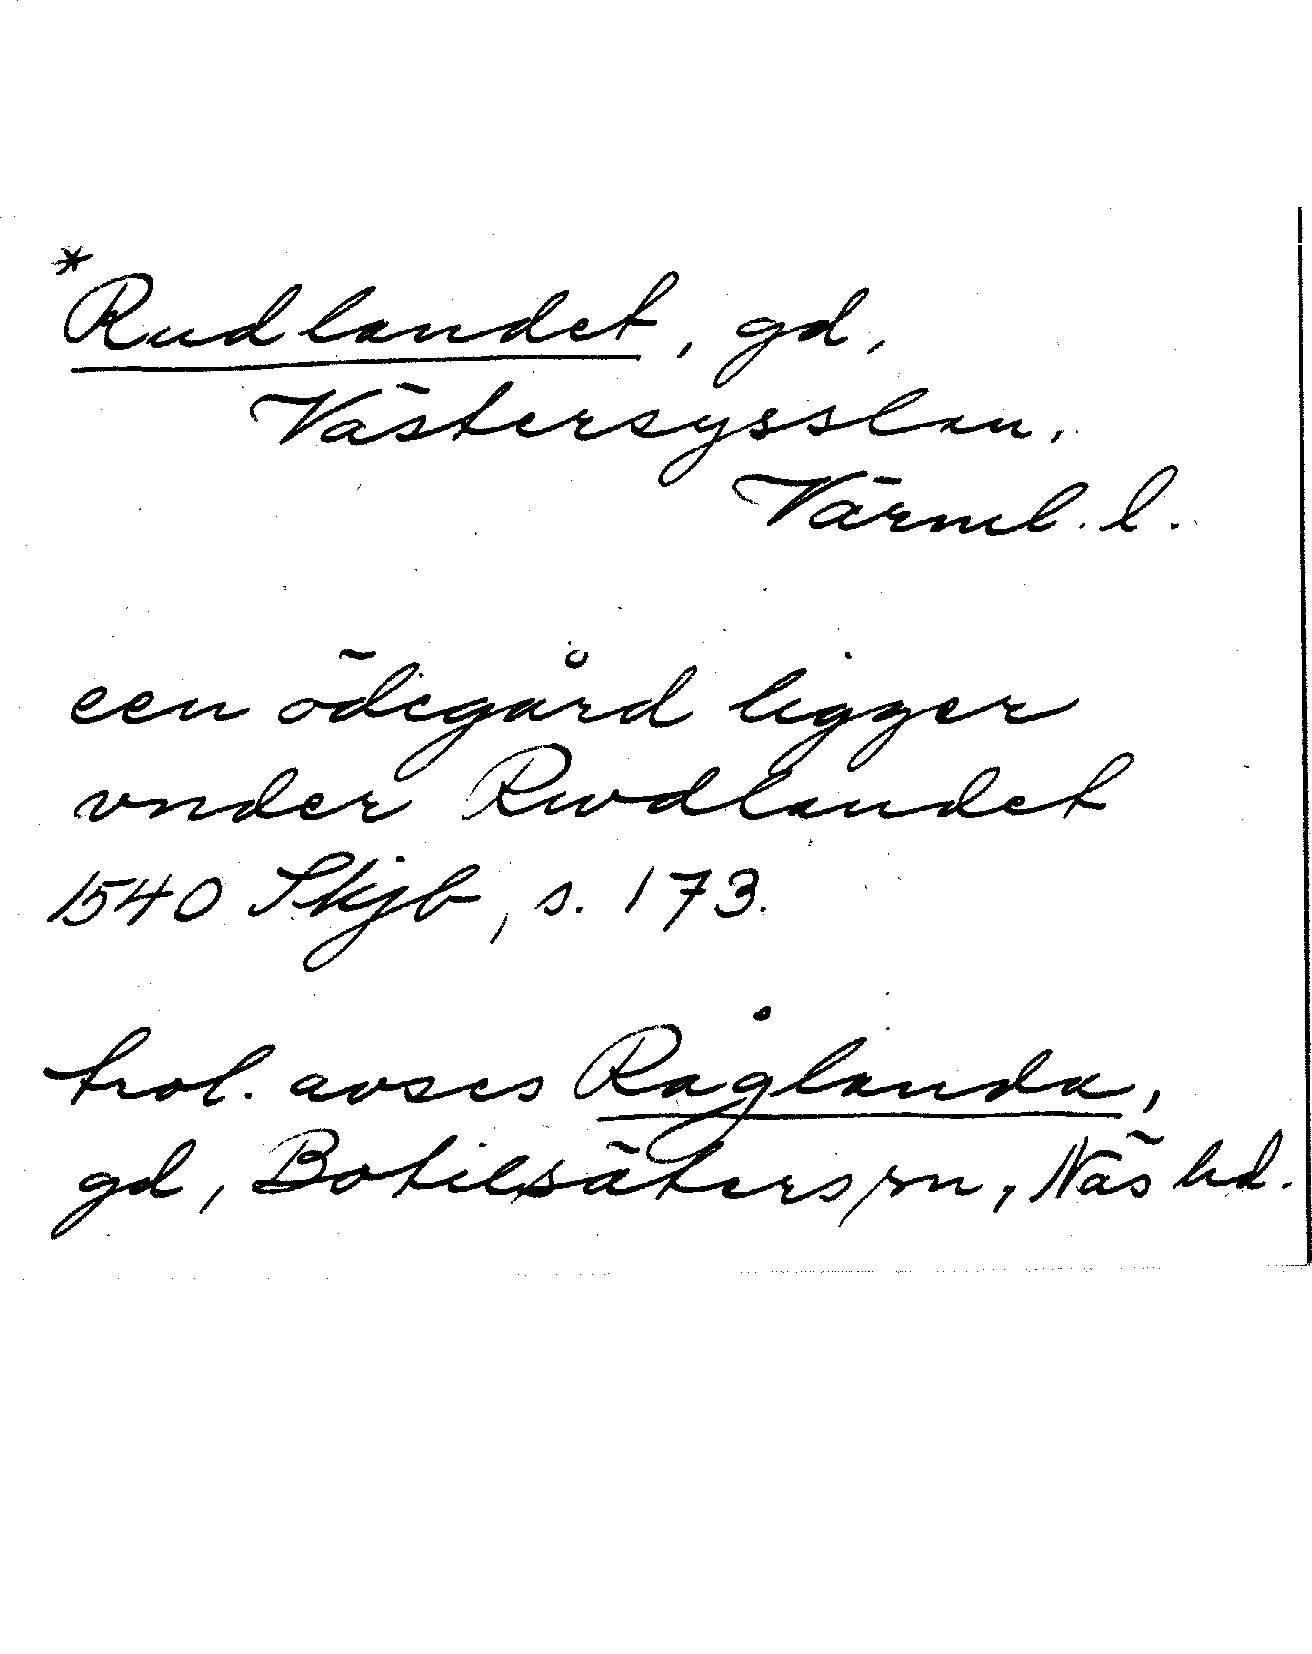 *Rudlandet, gd,
Västersysslan,
Värml. l.
een ödegård ligger
vnder Rwdlandet
1540 Skjb, s. 173.
trol. avses Råglanda,
gd, Botilsäters sn, Näs hd.